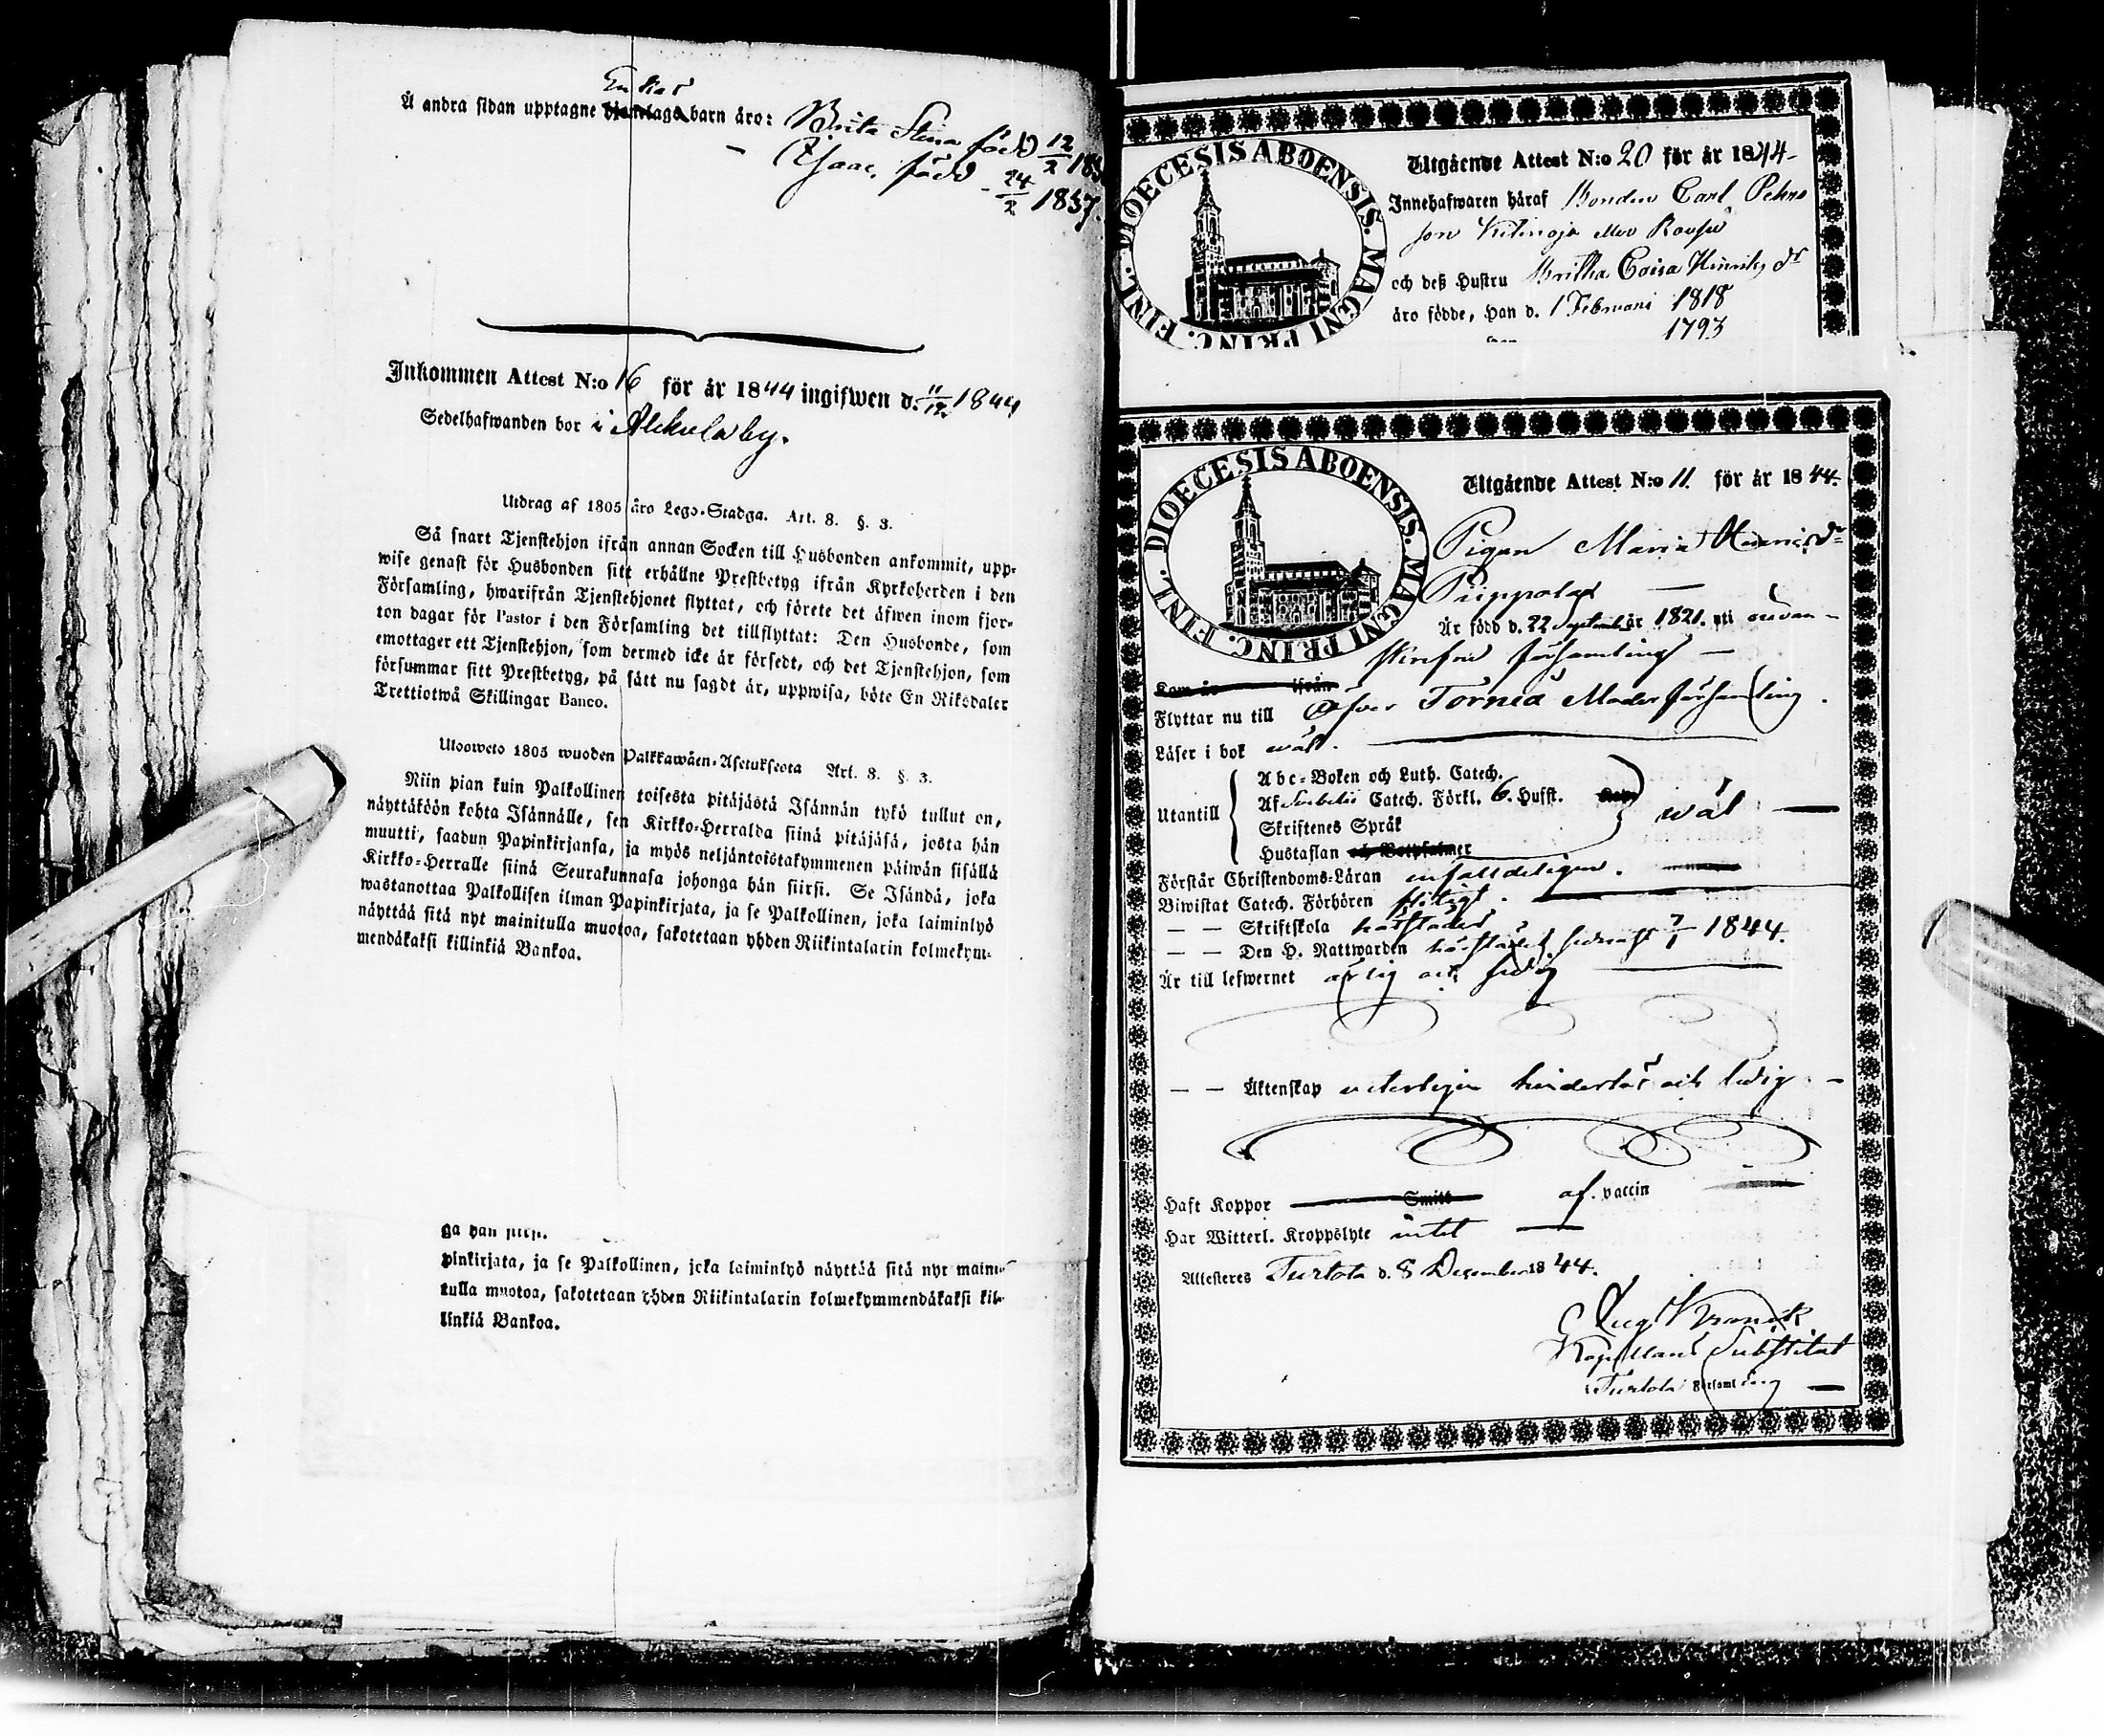 Enkas
Å andra sidan upptagne hjonelags barn äro: Brita Stina född 12/2 18
Isaac, född 24/2 1837.
Inkommen Attest N:o 16 för år 1844 ingifwen d. 11/12 1844
Sedelhafwanden bor i Alckula by.
Utdrag af 1805 års Lego-Stadga. Art. 8. §. 3.
Så snart Tjenstehjon ifrån annan Socken till Husbonden ankommit, upp-
wise genast för Husbonden sitt erhållne Prestbetyg ifrån Kyrkoherden i den
Församling, hwarifrån Tjenstehjonet flyttat, och förete det äfwen inom fjor-
ton dagar för Pastor i den Församling det tillflyttat: Den Husbonde, som
emottager ett Tjenstehjon, som dermed icke är försedt, och det Tjenstehjon, som
försummar sitt Prestbetyg, på sätt nu sagdt är, uppwisa, böte En Riksdaler
Trettiotwå Skillingar Banco.
Ulosweto 1805 wuoden Palkkawäen-Asetuksesta Art. 8. §. 3.
Niin pian kuin Palkollinen toisesta pitäjästä Isännän tykö tullut on,
näyttäköön kohta Isännälle, sen Kirkko-Herralda siinä pitäjäsä, josta hän
muutti, saadun Papinkirjansa, ja myös neljäntoistakymmenen päiwän sisällä
Kirkko-Herralle siinä Seurakunnasa johonga hän siirsi. Se Isändä, joka
wastanottaa Palkollisen ilman Papinkirjata, ja se Palkollinen, joka laiminlyö
näyttää sitä nyt mainitulla muotoa, sakotetaan yhden Riikintalarin kolmekym-
mendäkaksi killinkiä Bankoa.
ga hän siirsi.
pinkirjata, ja se Palkollinen, joka laiminlyö näyttää sitä nyt maini-
tulla muotoa, sakotetaan yhden Riikintalarin kolmekymmendäkaksi kil-
linkiä Bankoa.
DIOECESIS ABOENSIS. MAGNI PRINC. FINL.
Utgående Attest N:o 20 för år 1844
Innehafwaren häraf Bonden Carl Pehrs
son
och deß Hustru Britha Caisa Hinriks dr
äro födde, han d. 1 Februari 1818
1793
DIOECESIS ABOENSIS. MAGNI PRINC. FINL.
Utgående Attest N:o 11. för år 1844.
Pigan Maria dr
Är född d. 22 September år 1821. uti ofvan-
skrefne församling
Kom år ifrån
Flyttar nu till Öfver Torneå Moderförsamling.
Läser i bok wäl.
Abc-Boken och Luth. Catech.
Utantill Af Svebelii Catech. Förkl. 6. Hufst. wäl
Skriftenes Språk
Hustaflan och Botpsalmer
Förstår Christendoms-Läran enfalldeligen.
Biwistat Catech. Förhören flitigt.
— — Skriftskola
— — Den H. Nattwarden sednast 7/1 1844.
Är till lefwernet ärlig och sedig
— — Äktenskap veterligen hinderlös och ledig
Haft Koppor Smitt af. vaccin
Har Witterl. Kroppslyte intet
Attesteres Turtola d. 8 December 1844.
Kapellans Substitut
i Turtola Församling